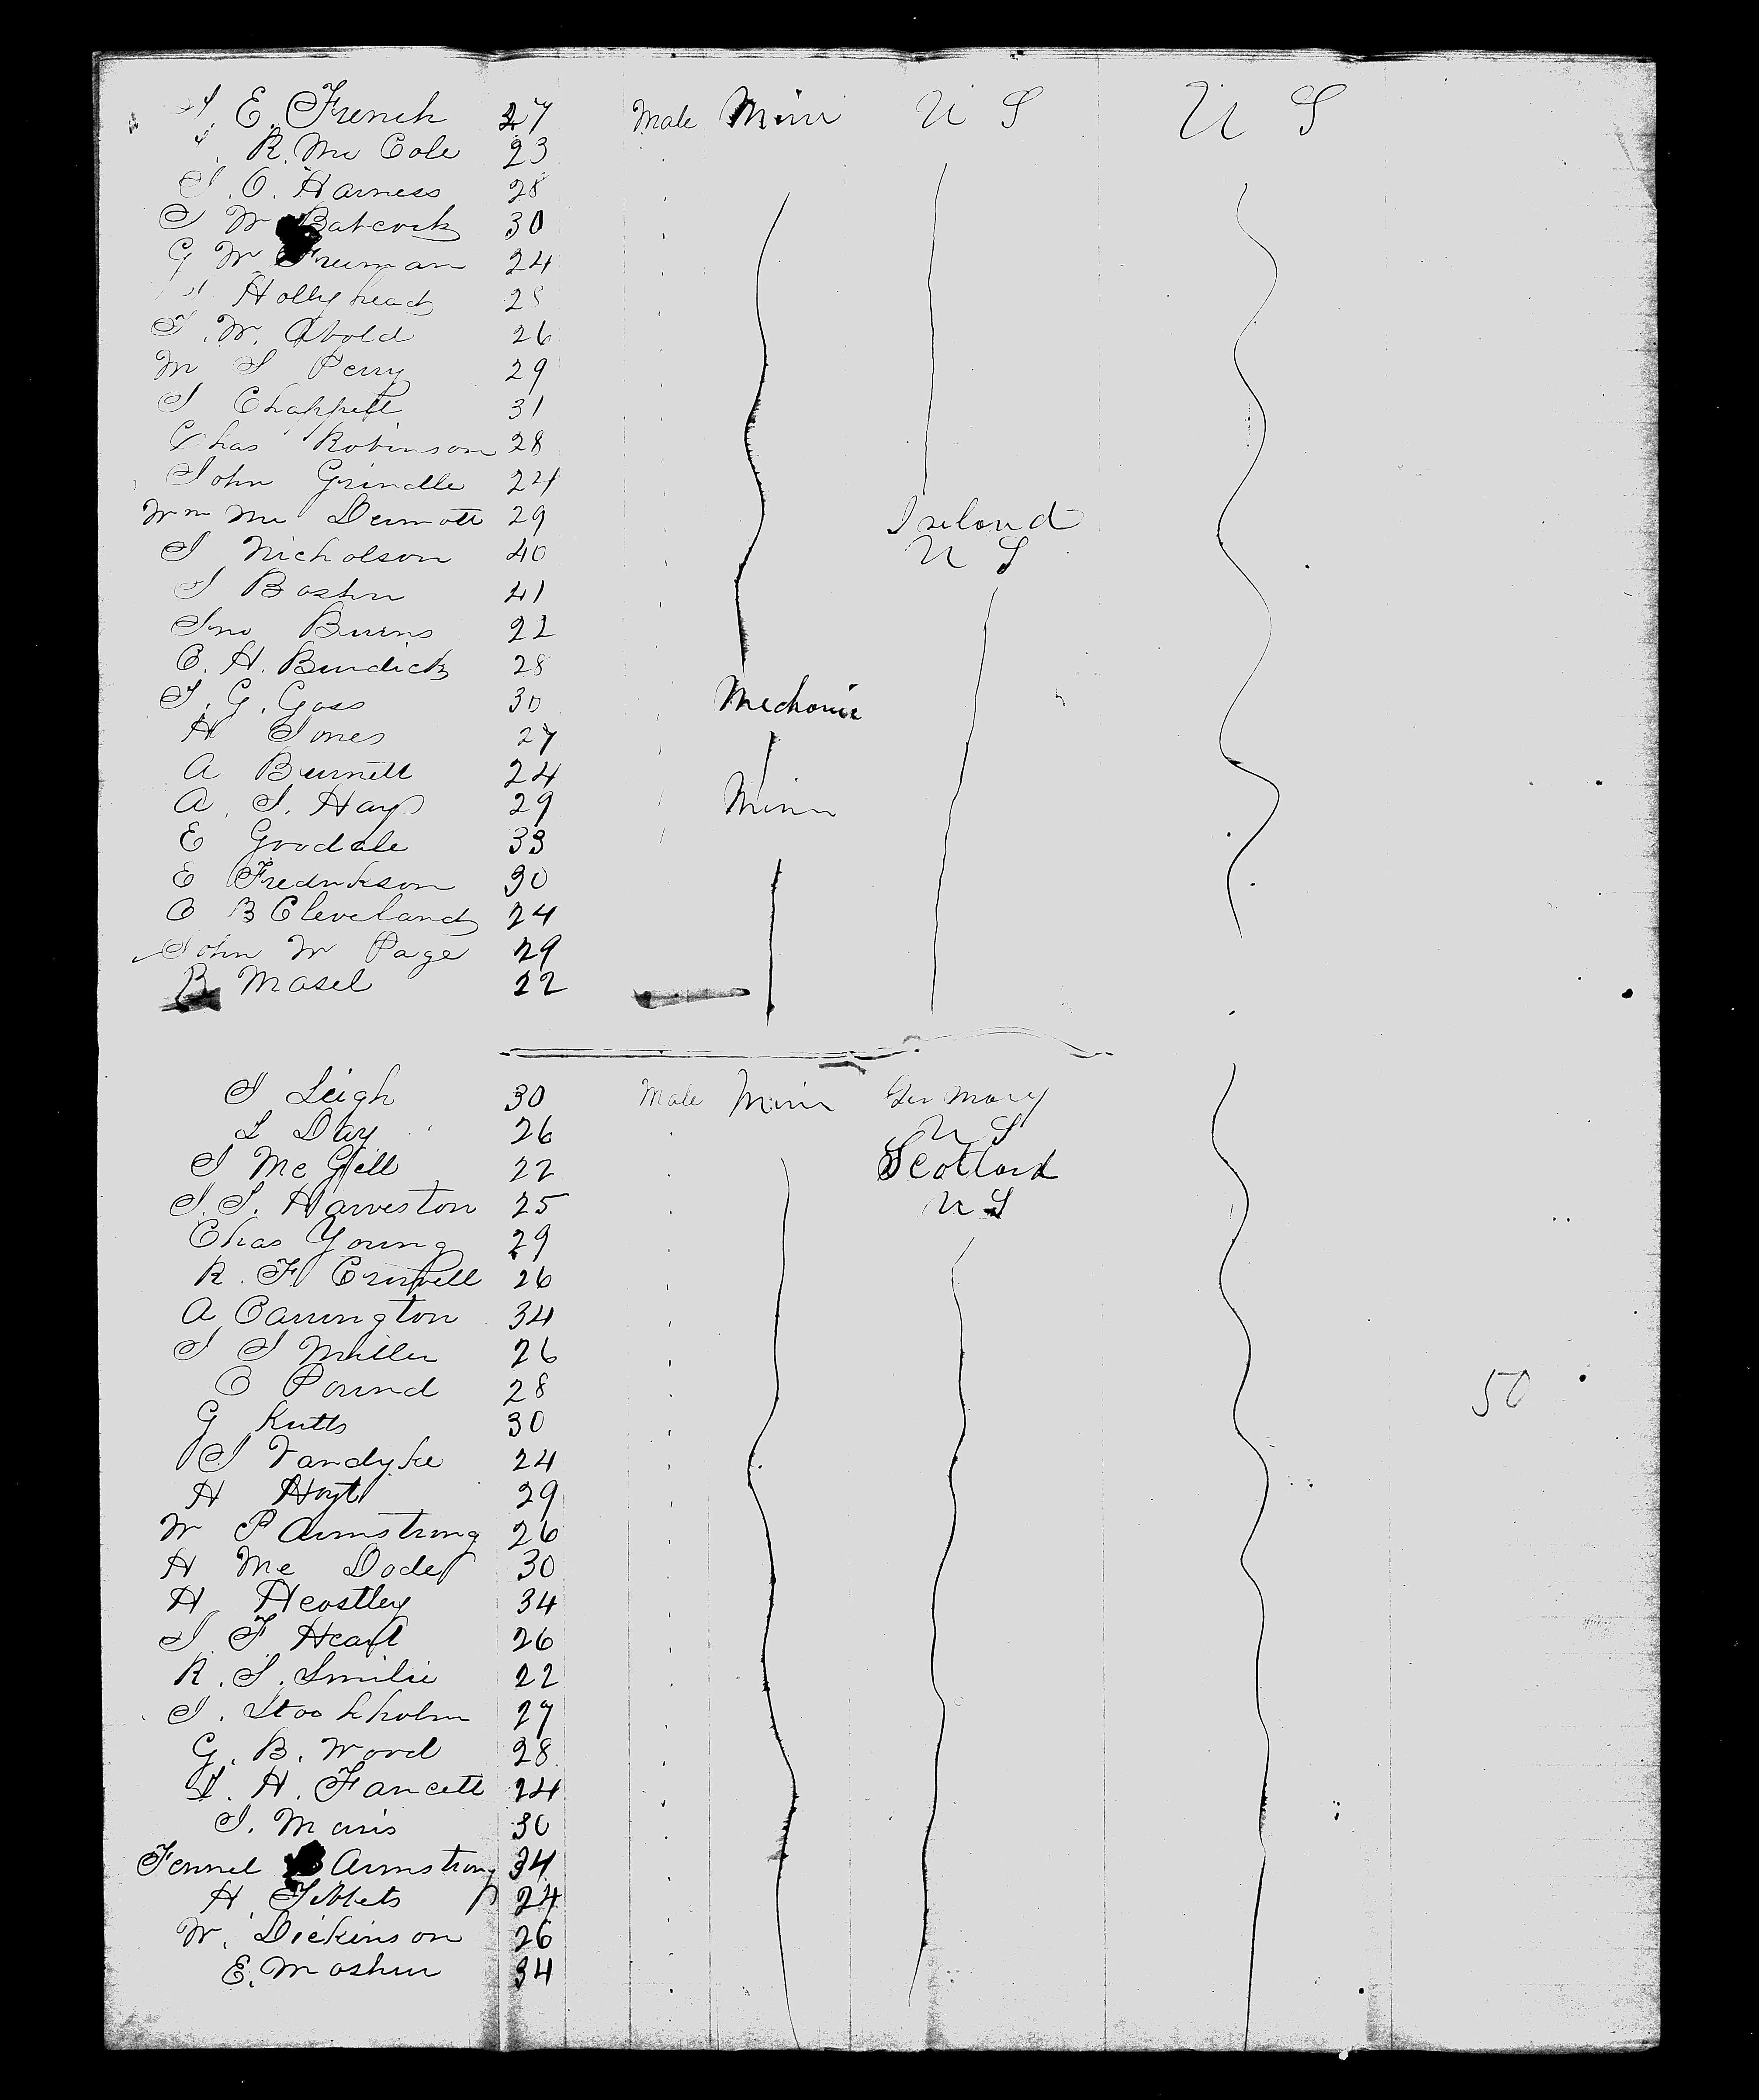 E. French 27 Male Minr U S U S
R. Mc Cole 23
J. O. Harness 28
J W Babcock 30
G W Freeman 24
Hollyhead 28
T. W. Abold 26
M S Perry 29
J Chappell 31
Chas Robinson 28
John Grindle 24
Wm Mc Dermott 29 Ireland
J Nicholson 40 U S
J Boston 41
Jno Burns 22
C. H. Burdick 28
J. G. Goss 30 Mechanic
H Jones 27
A Burnett 24
A. J. Hays 29 Minr
E Goodale 33
E Fredrikson 30
C B Cleveland 24
John W Page 29
B Masel 22
J Leigh 30 Male Minr Germany
L Day 26 U S
J Mc Gill 22 Scotland
J. S. Harveston 25 U S
Chas Young 29
R. F. Criswell 26
A Carrington 34
J J Miller 26
C Pound 28
G Kutts 30
J Vandyke 24
H Hoyt 29
W P Armstrong 26
H Mc Dode 30
H Heastley 34
J F Heart 26
R. S. Smilie 22
J. Stockholm 27
G. B. Word 28
J. H. Fancett 24
J. Maris 30
Fennel Armstrong 34
H Tibbets 24
W. Dickinson 26
E. Mosher 34
50